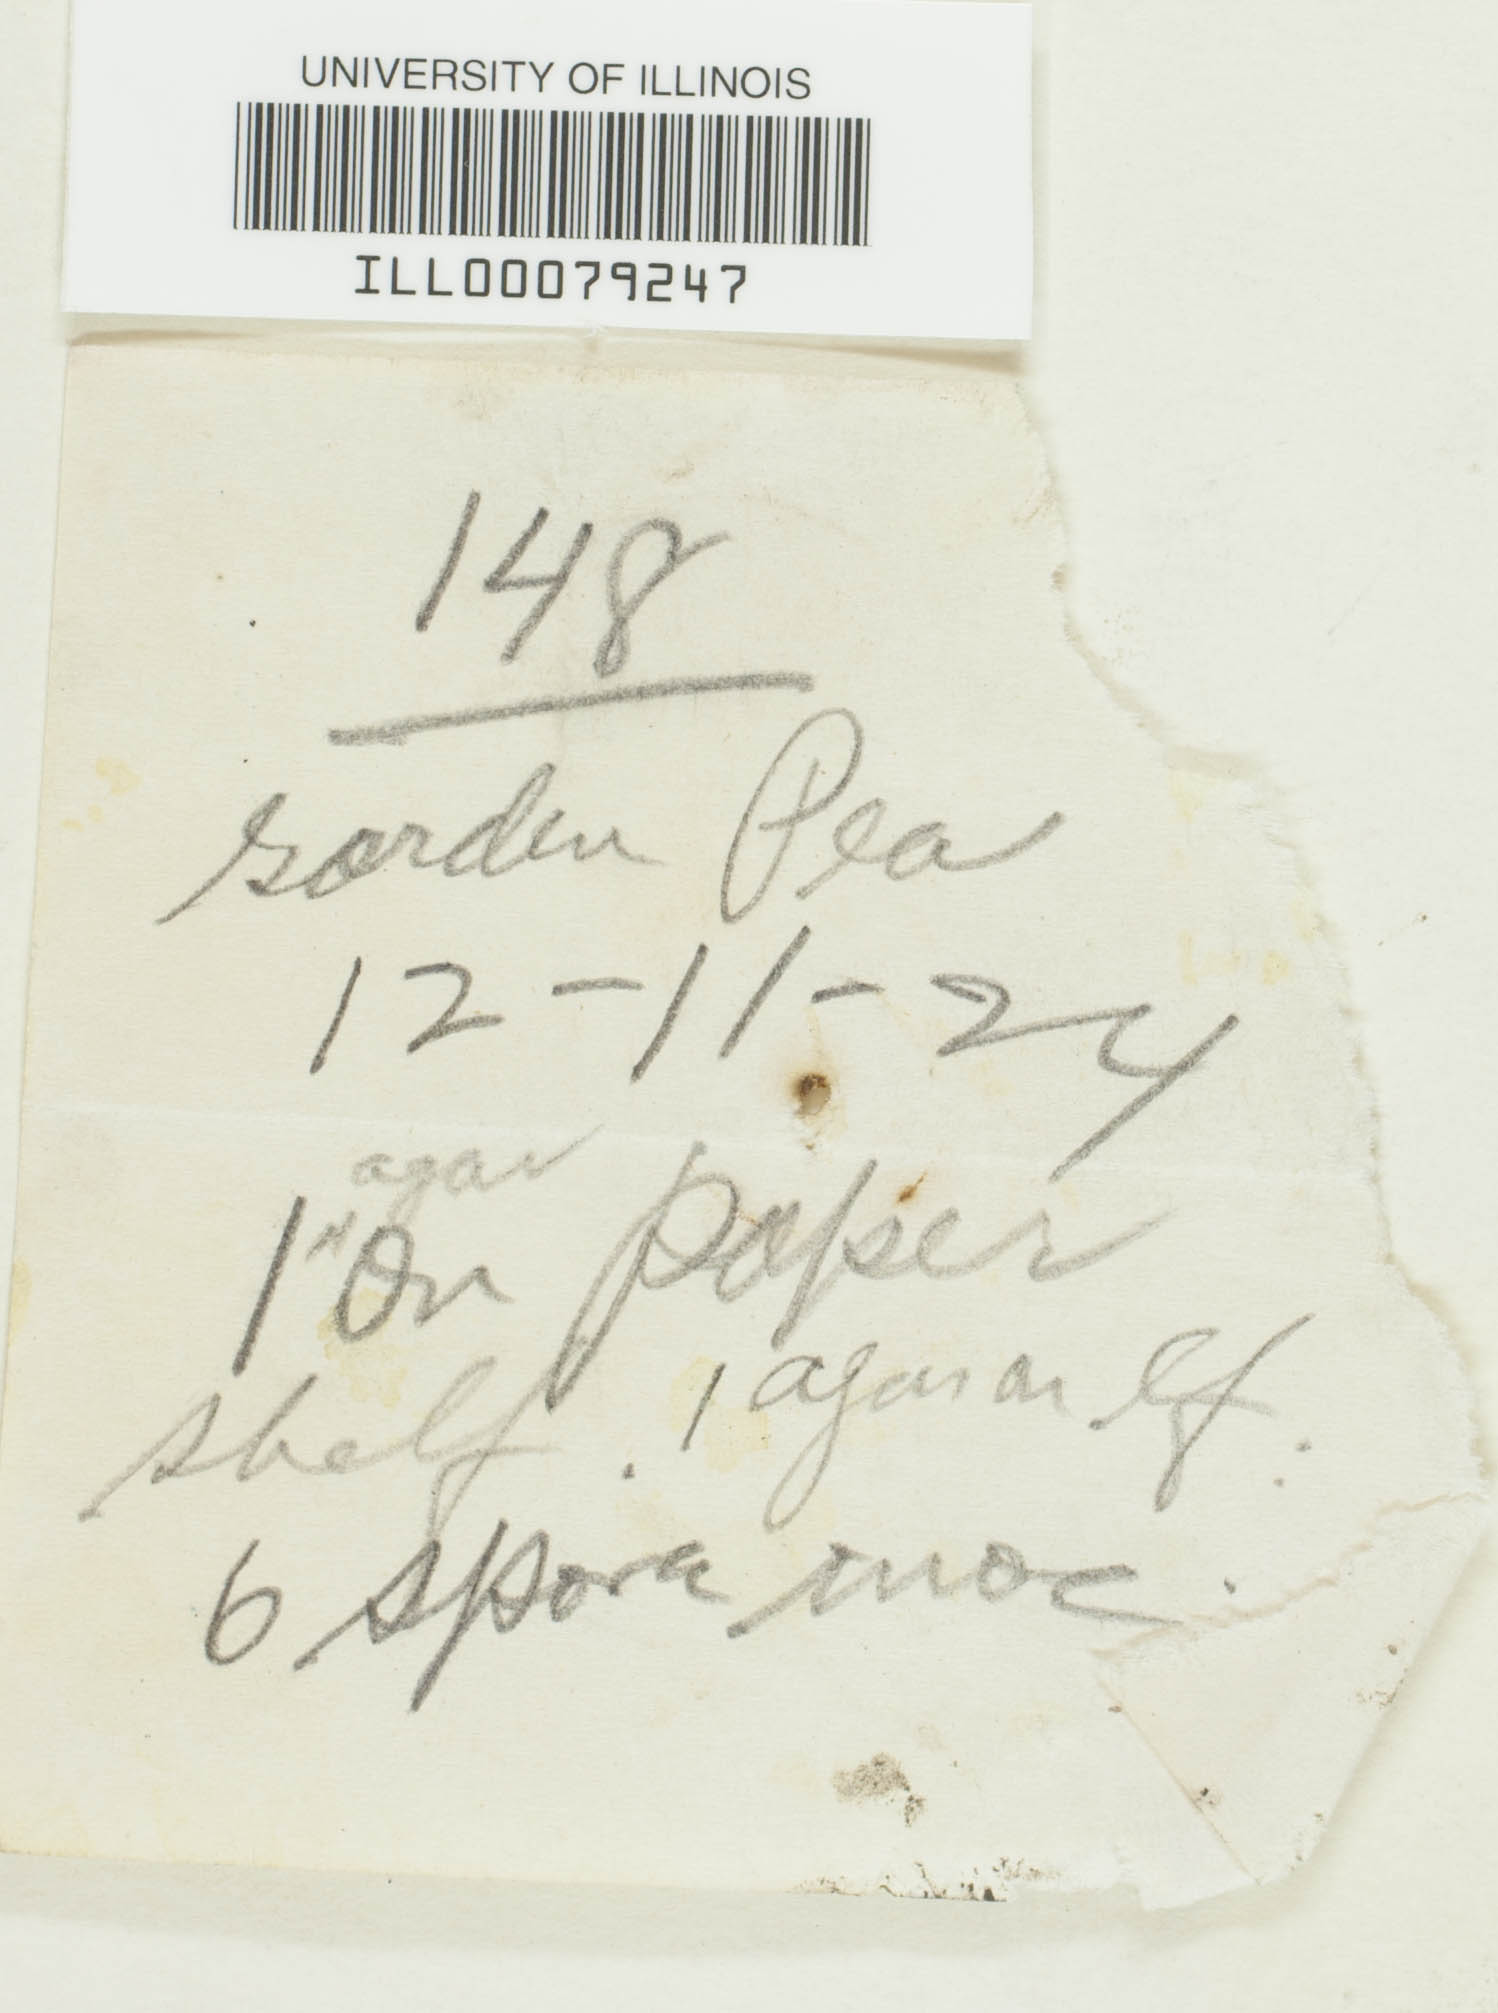 UNIVERSITY OF ILLINOIS
ILL00079247
148
Garden Pea
12-11-24
agar
1 "On paper
shelf. 1 agar on lf.
6 spore inoc.